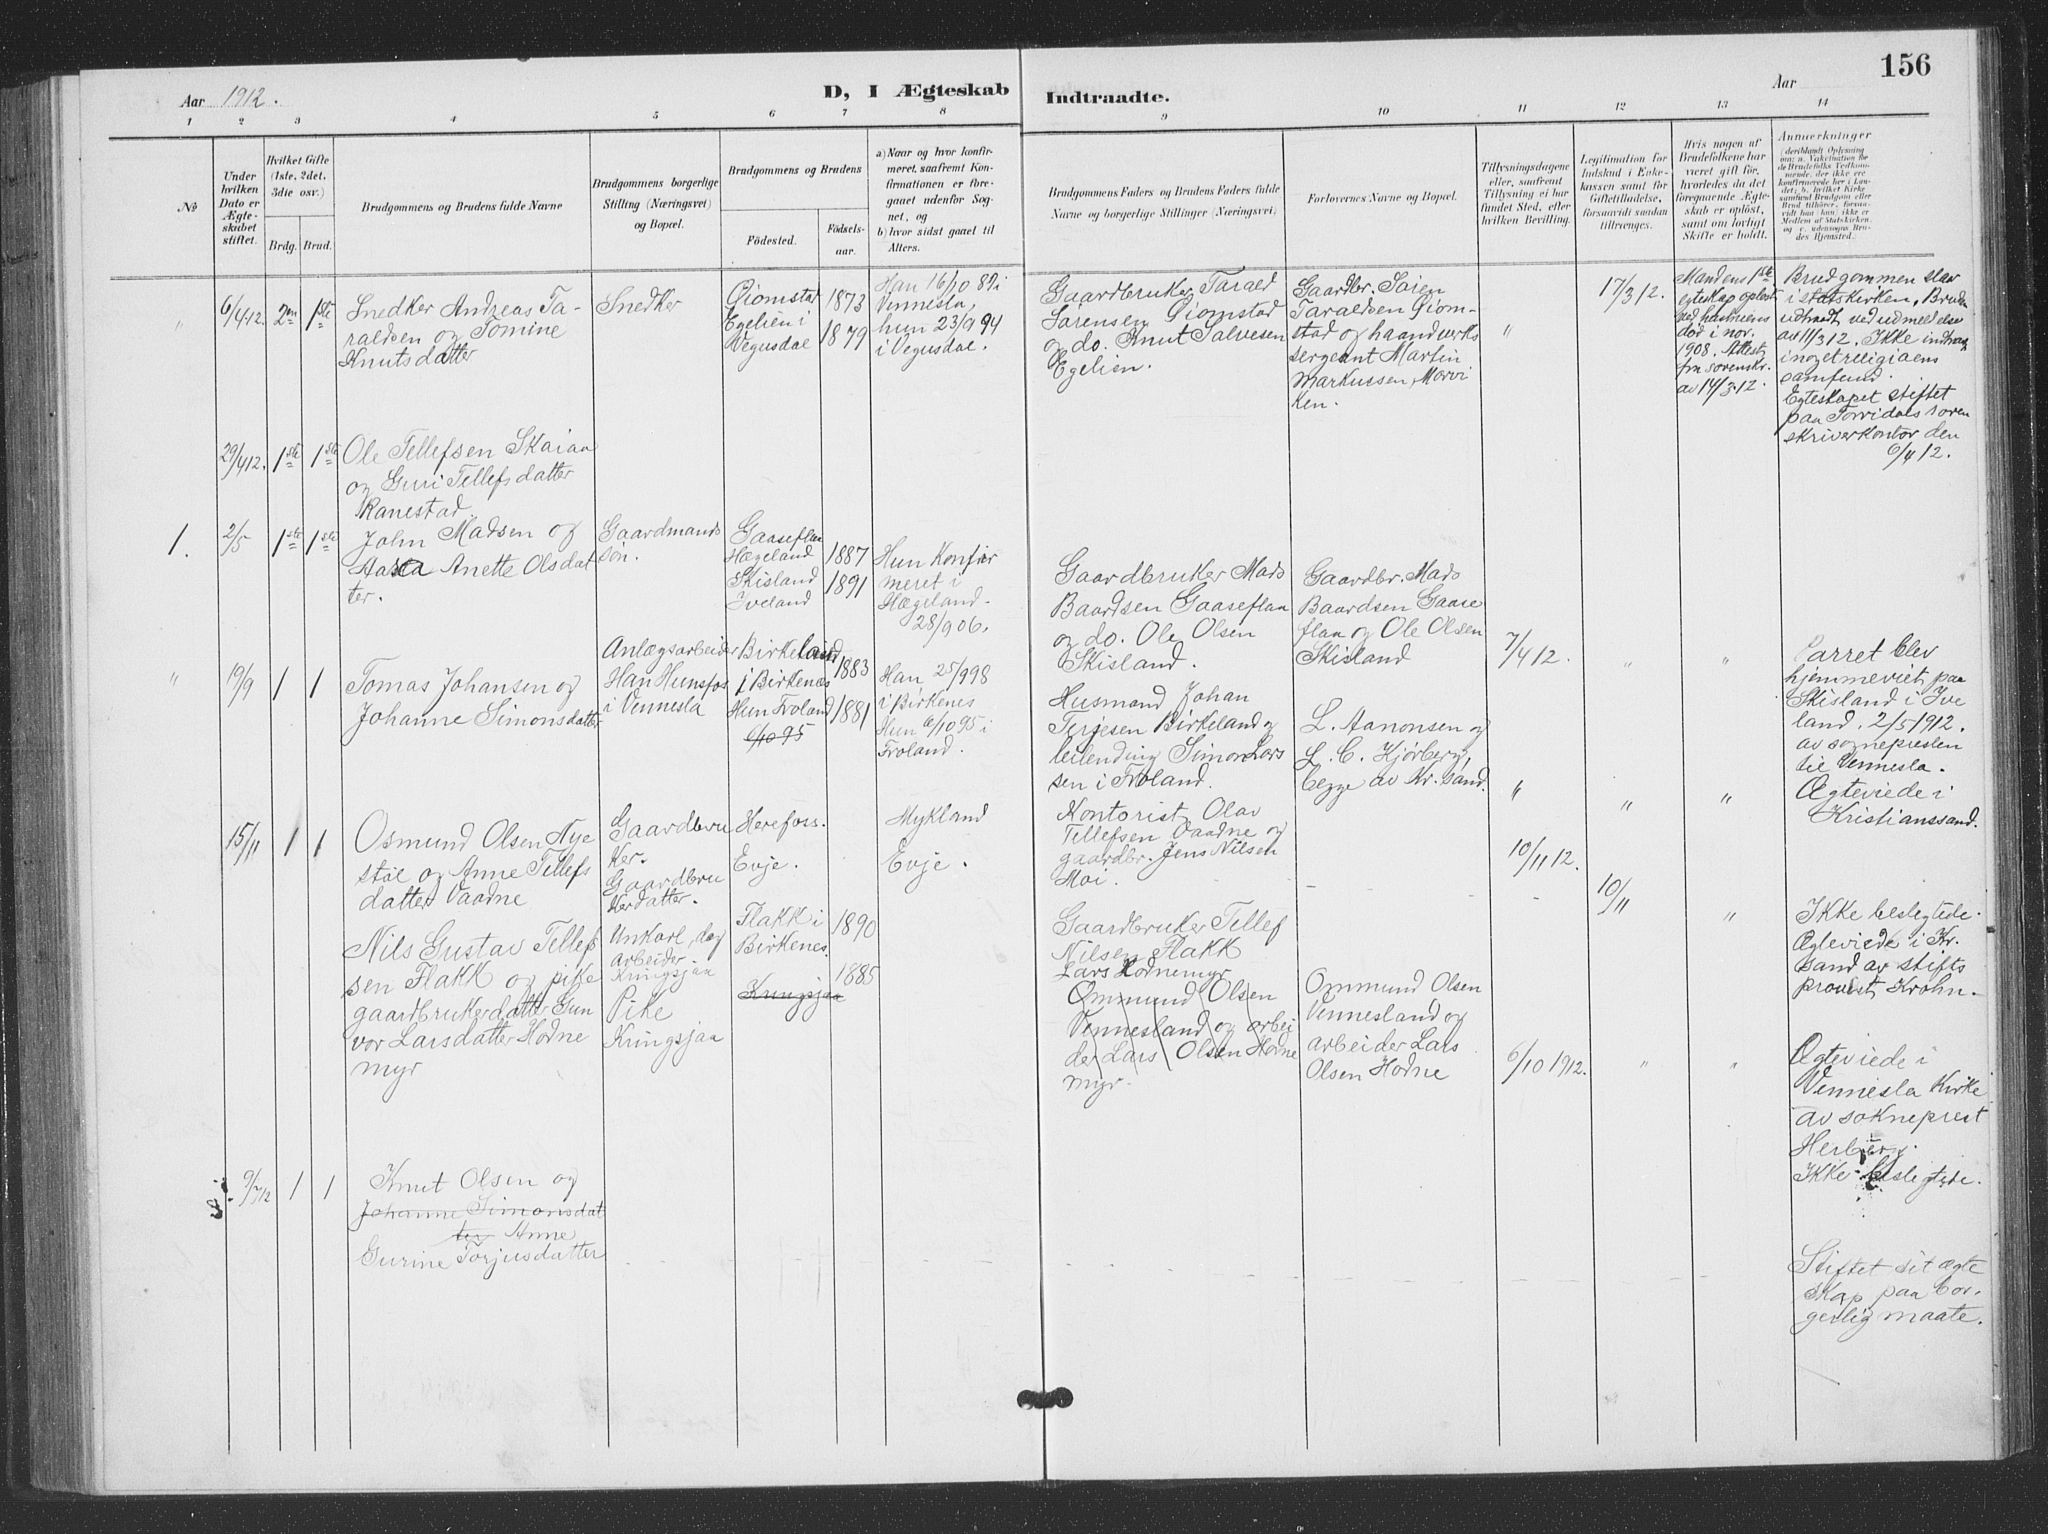 156
Aar 1912.
D, I Ægteskab Indtraadte.
Aar
1 2 3 4 5 6 7 8 9 10 11 12 13 14
№
Under hvilken Dato er Ægteskabet stiftet.
Hvilket Gifte (1ste, 2det, 3die osv.)
Brdg. Brud.
Brudgommens og Brudens fulde Navne
Brudgommens borgerlige Stilling (Næringsvei) og Bopæl.
Brudgommens og Brudens
Fødested. Fødselsaar.
a) Naar og hvor konfirmeret, saafremt Konfirmationen er foregaaet udenfor Sognet, og
b) hvor sidst gaaet til Alters.
Brudgommens Faders og Brudens Faders fulde Navne og borgerlige Stillinger (Næringsvei)
Forlovernes Navne og Bopæl.
Tillysningsdagene eller, saafremt Tillysning ei har fundet Sted, efter hvilken Bevilling.
Legitimation for Indskud i Enkekassen samt for Giftetilladelse, forsaavidt saadan tiltrænges.
Hvis nogen af Brudefolkene har været gift før, hvorledes da det foregaaende Ægteskab er opløst, samt om lovligt Skifte er holdt.
Anmerkninger
" 6/4 12. 2en 1ste
Snedker Andreas Ta-
raldsen og Tomine
Knutsdatter
Snedker
Øiomstad
Egelien i
Vegusdal
1873
1879
Han 16/10 89 i
Vennesla,
hun 23/9 94
i Vegusdal.
Gaardbruker Tarald
Sørensen Øiomstad
og do. Knut Salvesen
Egelien.
Gaardbr. Søren
Taraldsen Øiom-
stad og haandverks
sergeant Martin
Markussen, Morvi
ken.
"
17/3 12.
Mandens 1ste
egteskap opløst
ved hustruens
død i nov.
1908. Attest
fra sorenskr.
av 14/3 12.
Brudgommen staar
i statskirken, Bruden
udtraadt ved udmeldelse
av 11/3 12. Ikke indtraadt
i noget religiøens
samfund.
Egteskapet stiftet
paa Torridals soren
skriverkontor den
6/4 12.
29/4 12. 1ste 1ste
Ole Tellefsen Skaiaa
og Guri Tellefsdatter
Ranestad.
1. 2/5 1ste 1ste
John Madsen og
Aasta Anette Olsdat
ter.
Gaardmands
søn.
Gaaseflaa
Hægeland
Skisland
Iveland
1887
1891
Hun Konfir
meret i
Hægeland.
28/9 06.
Gaardbruker Mads
Baardsen Gaaseflaa
og do. Ole Olsen
Skisland.
Gaardbr. Mads
Baardsen Gaase
flaa og Ole Olsen
Skisland
7/4 12.
" "
Parret blev
hjemmeviet paa
Skisland i Ive
land. 2/5 1912.
av sognepresten
til Vennesla.
" 19/9 1 1
Tomas Johansen og
Johanne Simonsdatter
Anlægsarbeider
Han Hunsfos
i Vennesla
Birkeland
i Birkenes
Hun Froland
6/10 95
1883
1881
Han 25/9 98
i Birkenes
Hun 6/10 95 i
Froland.
Husmand Johan
Terjesen Birkeland og
leilending Simon Lars
sen i Froland.
L. Aanonsen og
L. C. Hjörberg,
begge av Kr.sand.
" " "
Ægteviede i
Kristianssand.
15/11 1 1
Osmund Olsen Nye
støl og Anne Tellefs
datter Vaadne
Gaardbru
ker.
Gaardbru
kerdatter.
Herefoss.
Evje.
Mykland
Evje.
Kontorist Olav
Tellefsen Vaadne og
gaardbr. Jens Nilsen
Moi.
10/11 12.
10/11
"
Ikke beslegtede.
Ægteviede i Kr.
sand av stifts
provst Krohn.
Nils Gustav Tellef
sen Flakk og pike
gaardbrukerdatter Gun
vor Larsdatter Hodne
myr
Unkarl, dag
arbeider
Kringsjaa
Pike
Kringsjaa
Flakk i
Birkenes.
Kringsjaa
1890
1885
Gaardbruker Tellef
Nilsen Flakk
Lars Hodnemyr
Ommund Olsen
Vennesland og arbei
der Lars Olsen Hodne
myr.
Ommund Olsen
Vennesland og
arbeider Lars
Olsen Hodne
6/10 1912.
" "
Ægteviede i
Vennesla Kirke
av sokneprest
Ikke beslegtede.
9/7 12 1 1
Knut Olsen og
Johanne Simonsdat
ter Anne
Gurine Torjusdatter
Stiftet sit ægte
skap paa bor.
gerlig maate.